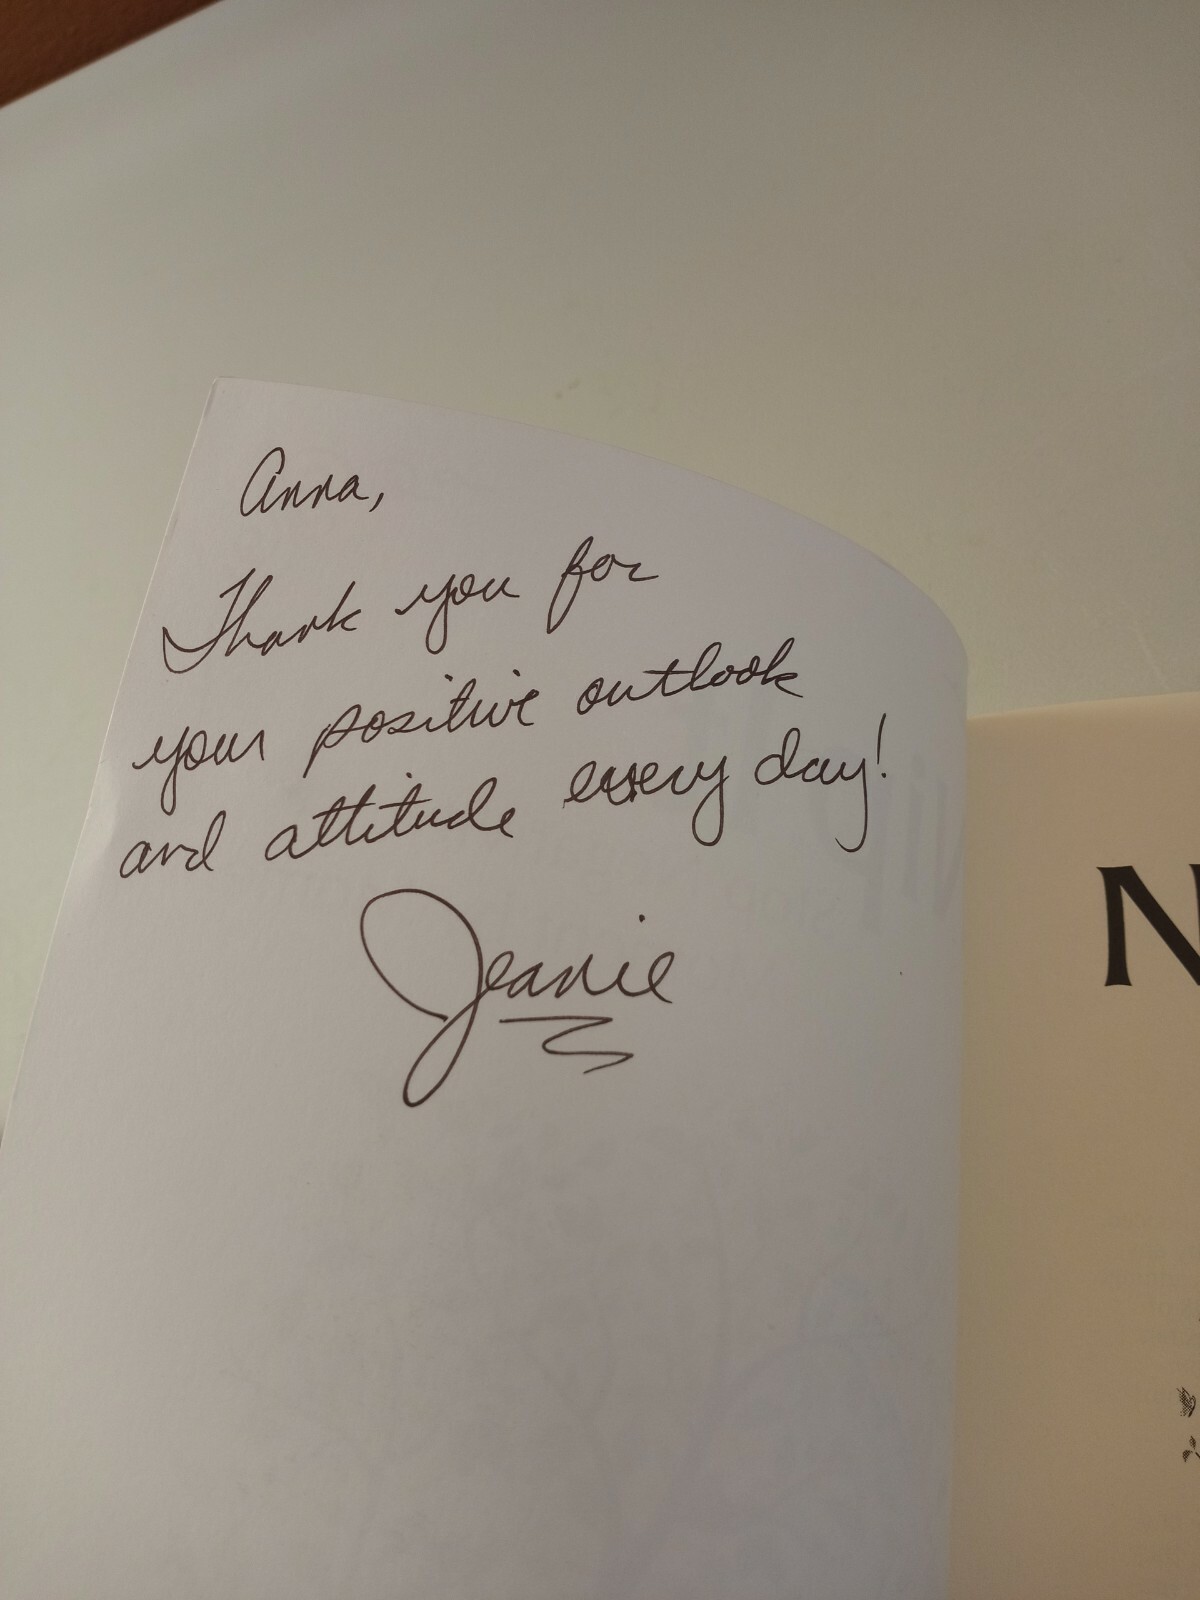 Anna,
Thank you for
your positive outlook
and attitude every day!
Jeanie
N